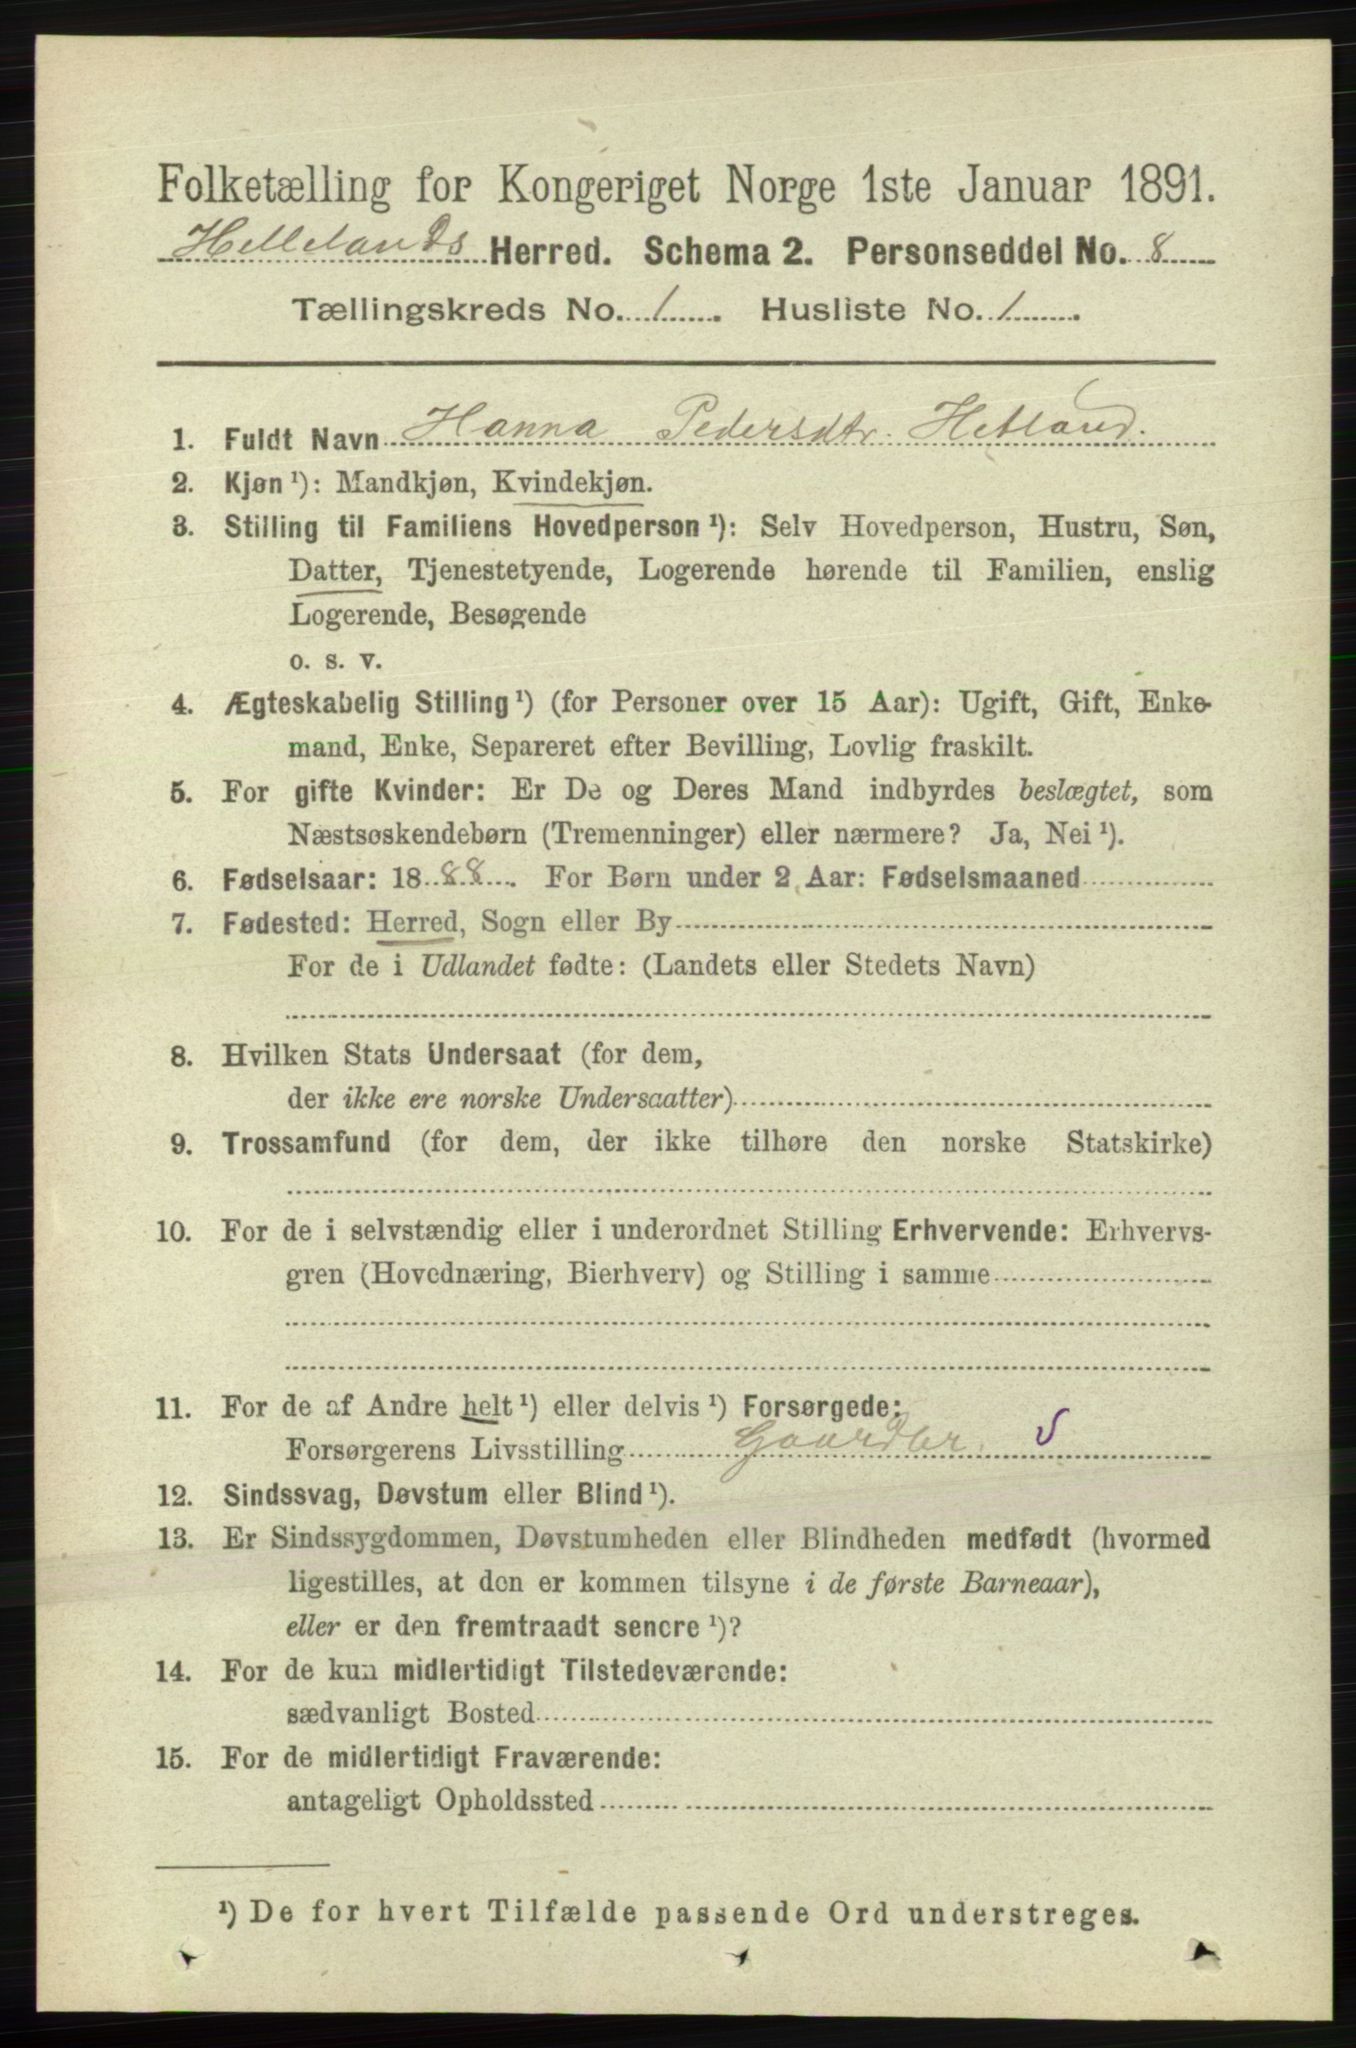 Folketælling for Kongeriget Norge 1ste Januar 1891.
Hellelands Herred. Schema 2. Personseddel No. 8
Tællingskreds No. 1. Husliste No. 1.
1. Fuldt Navn Hanna Pedersdtr. Hetland.
2. Kjøn ¹): Mandkjøn, Kvindekjøn.
3. Stilling til Familiens Hovedperson ¹): Selv Hovedperson, Hustru, Søn,
Datter, Tjenestetyende, Logerende hørende til Familien, enslig
Logerende, Besøgende
o. s. v.
4. Ægteskabelig Stilling ¹) (for Personer over 15 Aar): Ugift, Gift, Enke-
mand, Enke, Separeret efter Bevilling, Lovlig fraskilt.
5. For gifte Kvinder: Er De og Deres Mand indbyrdes beslægtet, som
Næstsøskendebørn (Tremenninger) eller nærmere? Ja, Nei ¹).
6. Fødselsaar: 1888. For Børn under 2 Aar: Fødselsmaaned
7. Fødested: Herred, Sogn eller By
For de i Udlandet fødte: (Landets eller Stedets Navn)
8. Hvilken Stats Undersaat (for dem,
der ikke ere norske Undersaatter)
9. Trossamfund (for dem, der ikke tilhøre den norske Statskirke)
10. For de i selvstændig eller i underordnet Stilling Erhvervende: Erhvervs-
gren (Hovednæring, Bierhverv) og Stilling i samme
11. For de af Andre helt ¹) eller delvis ¹) Forsørgede:
Forsørgerens Livsstilling Gaardbr. S
12. Sindssvag, Døvstum eller Blind ¹).
13. Er Sindssygdommen, Døvstumheden eller Blindheden medfødt (hvormed
ligestilles, at den er kommen tilsyne i de første Barneaar),
eller er den fremtraadt senere ¹)?
14. For de kun midlertidigt Tilstedeværende:
sædvanligt Bosted
15. For de midlertidigt Fraværende:
antageligt Opholdssted
¹) De for hvert Tilfælde passende Ord understreges.